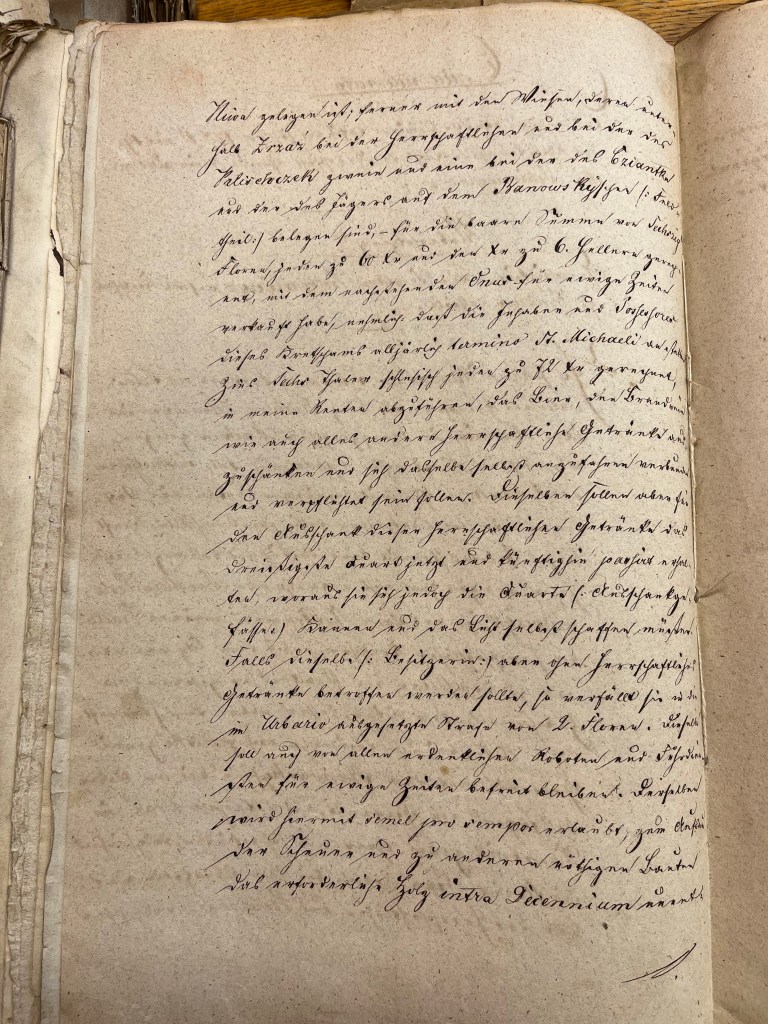 Niwa gelegen ist; ferner mit den Wiesen, deren unter-
halb Zrzaz bei der Herrschaftlichen und bei der des
Valischczek zwein und eine bei der des Cziantka
und der des Jägers auf dem Banowskÿschen (: Feld-
theil:) belegen sind, – für die baare Summe von Sechszig
Floren, jeden zu 60 Xr und den Xr zu 6. Hellern gerech-
net, mit dem nachstehenden Onus für ewige Zeiten
verkauft habe, nehmlich: daß die Inhaber und Possessores
dieses Kretschams alljärlich termino St. Michaeli an
Zins Sechs Thaler schlesisch jeden zu 72 Xr gerechnet,
in meine Renten abzuführen, das Bier, den Brandwein
wie auch alles andere Herrschaftliche Getränke aus-
zuschänken und sich dasselbe selbst anzuführen verbunden
und verpflichtet sein sollen. Dieselben sollen aber für
den Ausschank dieser herrschaftlichen Getränke das
dreißigste Quart jetzt und künftighin passirt erhal-
ten, woraus sie sich jedoch die Quarte (: Ausschankge-
fässe:) Kannen und das Licht selbst schaffen müssen
Falls dieselbe (: Besitzerin:) aber ohne Herrschaftliches
Getränke betroffen werden sollte, so verfällt sie in die
im Urbario ausgesetzte Strafe von 2. Floren. Dieselbe
soll auch von allen erdenklichen Roboten und Fuhrdien-
sten für ewige Zeiten befreit bleiben. Derselben
wird hiermit semel pro semper erlaubt, zum Aufbau
der Scheuer und zu anderen nöthigen Bauten
das erforderliche Holz intra Decennium unent-